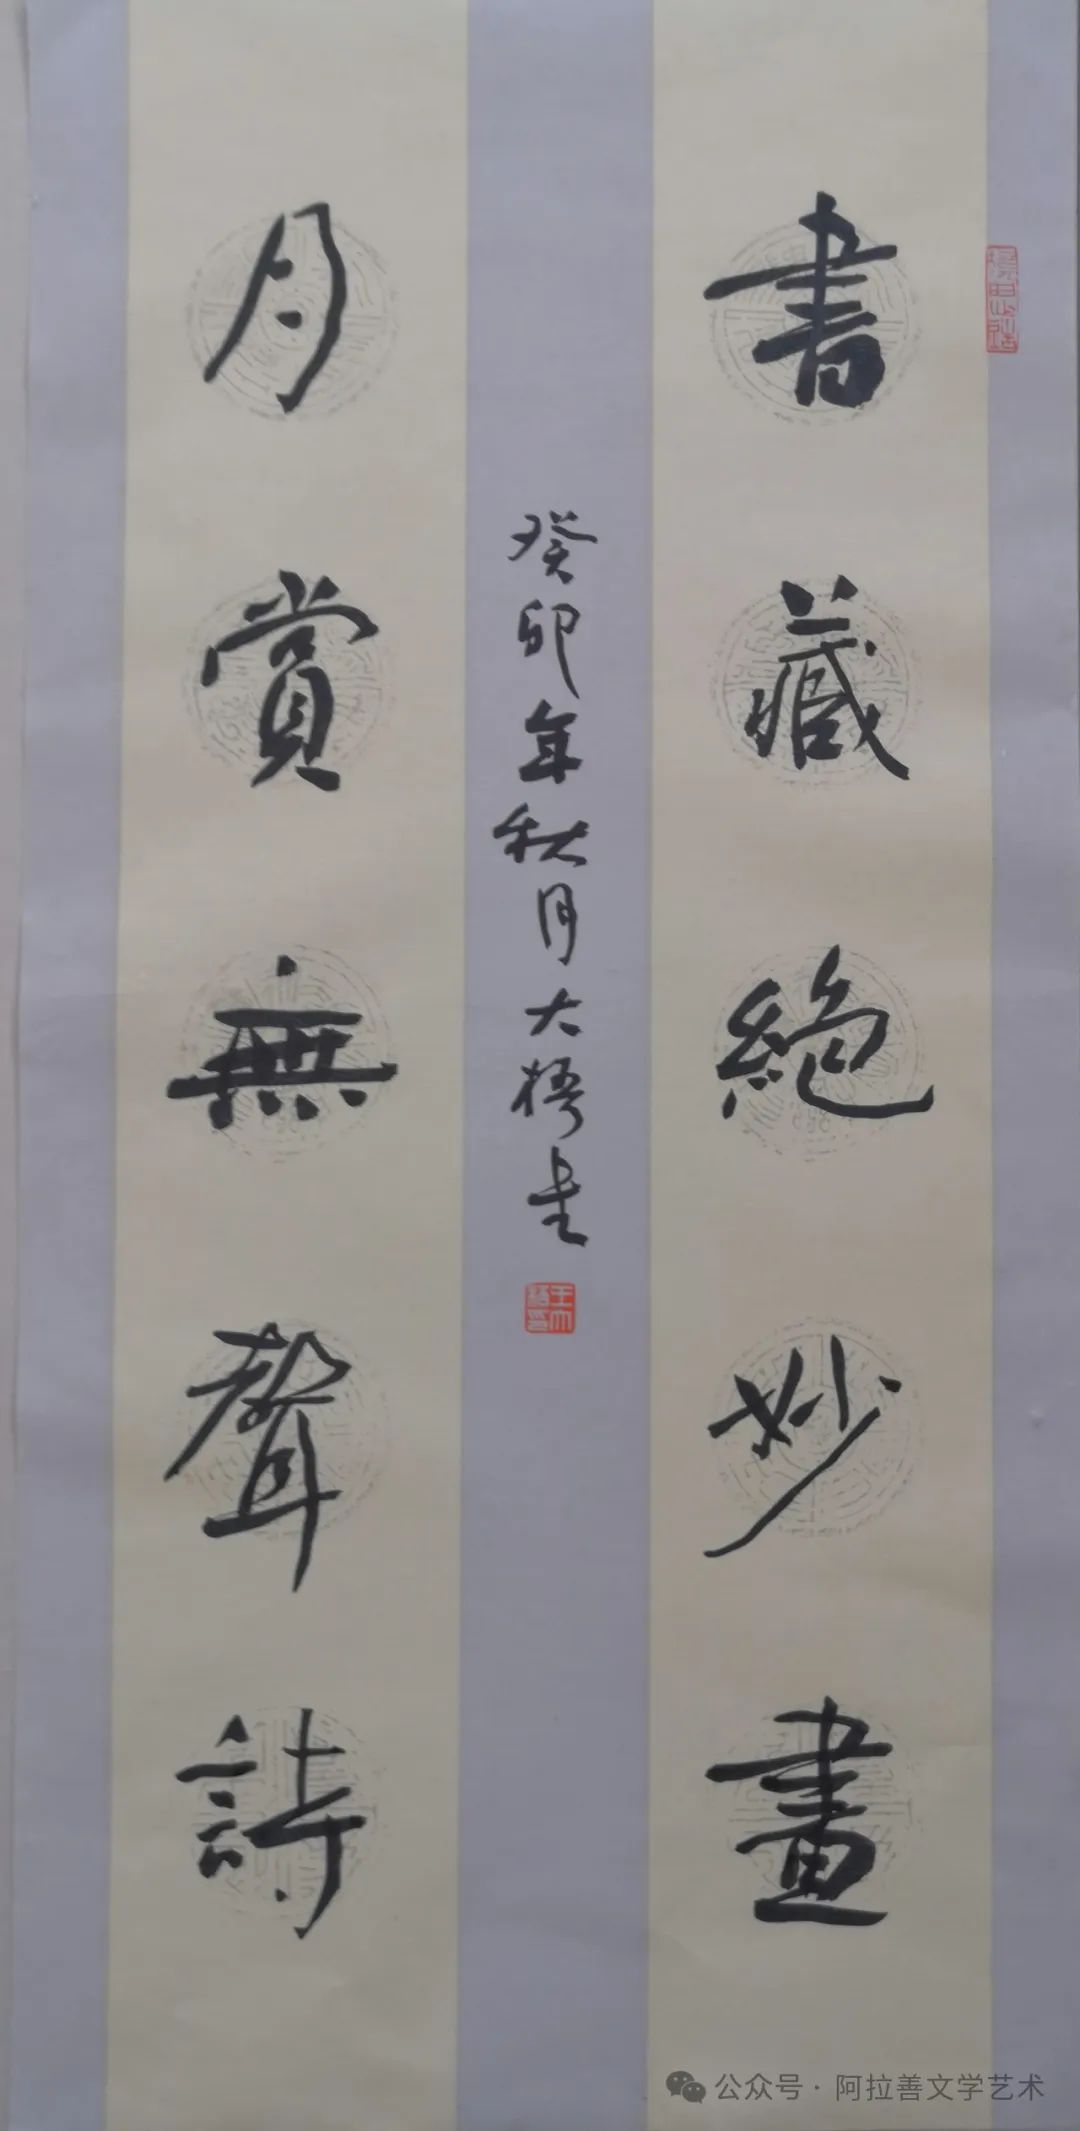 書藏絶妙畫
月賞無聲詩
癸卯年秋月大梧
王大梧印
公众号·阿拉善文学艺术